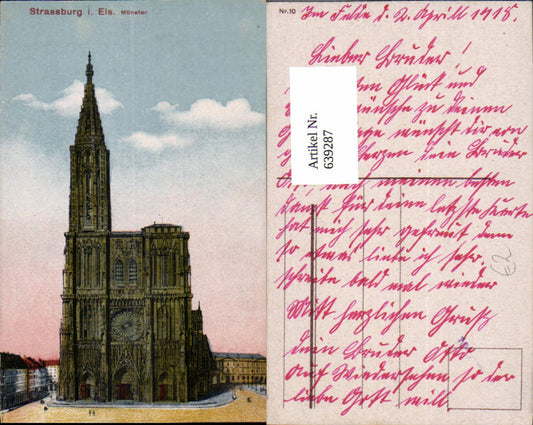 Strassburg i. Els. Münster
Nr. 10
Im Felde d. 2. April 1918.
Lieber Bruder!
Glück und
zu deinen
wünscht dir von
Herzen dein Bruder
nach meinen besten
Dank für deine letzte Karte
hat mich sehr gefreut denn
so etwas liebe ich sehr.
schreibe bald mal wieder
Mit herzlichen Gruß
dein Bruder Otto
Auf Wiedersehen so der
liebe Gott will.
Artikel Nr.
639287
€2